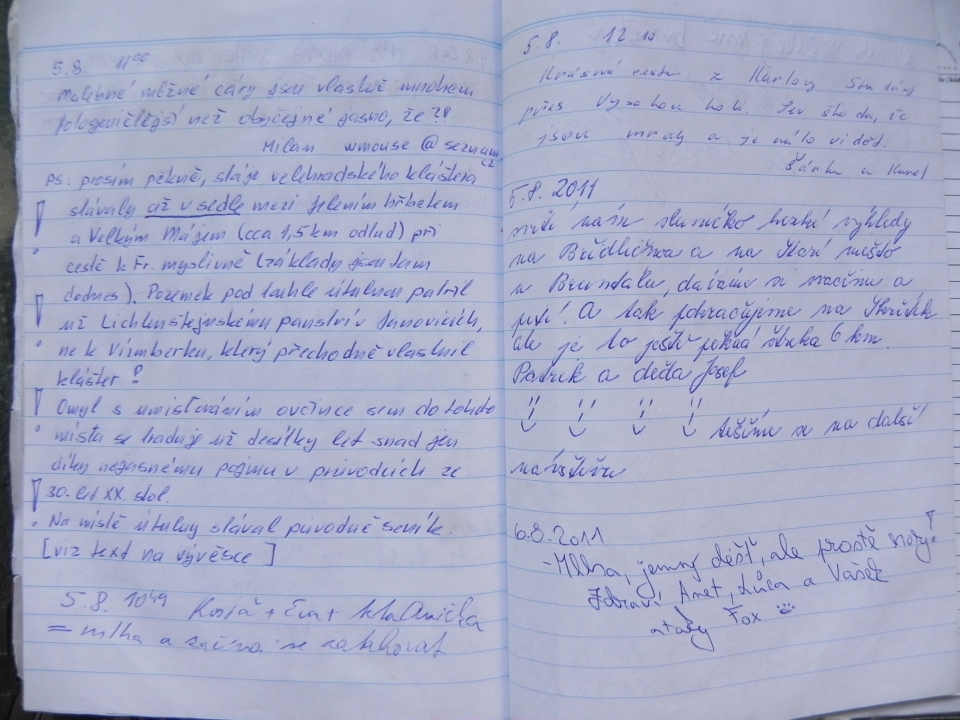 5.8. 11⁰⁰
Malebné mlžné cáry jsou vlastně mnohem
fotogeničtější než obyčejné jasno, že ?!
Milan wmouse @ seznam.cz
PS. prosím pěkně, stáje velehradského kláštera
stávaly až v sedle mezi Jelením hřbetem
a Velkým Májem (cca 1,5 km odtud) při
cestě k Fr. myslivně (základy jsou tam
dodnes). Pozemek pod touhle útulnou patřil
už Lichtenštejnskému panství v Janovicích,
ne k Vizmberku, který přechodně vlastnil
klášter !
Omyl s umisťováním ovčince sem do tohoto
místa se traduje už desítky let snad jen
díky nejasnému pojmu v průvodcích ze
30. let XX. stol.
Na místě útulny stával původně seník.
[viz text na vývěsce]
5.8. 10⁴⁹ + Eva +
= mlha a začíná se zatahovat
5.8. 12 10
Krásná cesta z Karlovy Studánky
přes Vysokou holi. Jen škoda, že
jsou mraky a je málo vidět.
Šárka a Karel
5.8. 2011
svítí nám sluníčko hezké výhledy
na Břidličnou a na Staré město
u Bruntálu, dáváme si svačinu a
pití! A tak pokračujeme na Skřítek
ale je to ještě pěkná štreka 6 km.
Patrik a děda Josef
těšíme se na další
návštěvu
6.8.2011
- Mlha, jemný déšť, ale prostě hory!
Zdraví Anet, Lůca a Vašek
a taky Fox